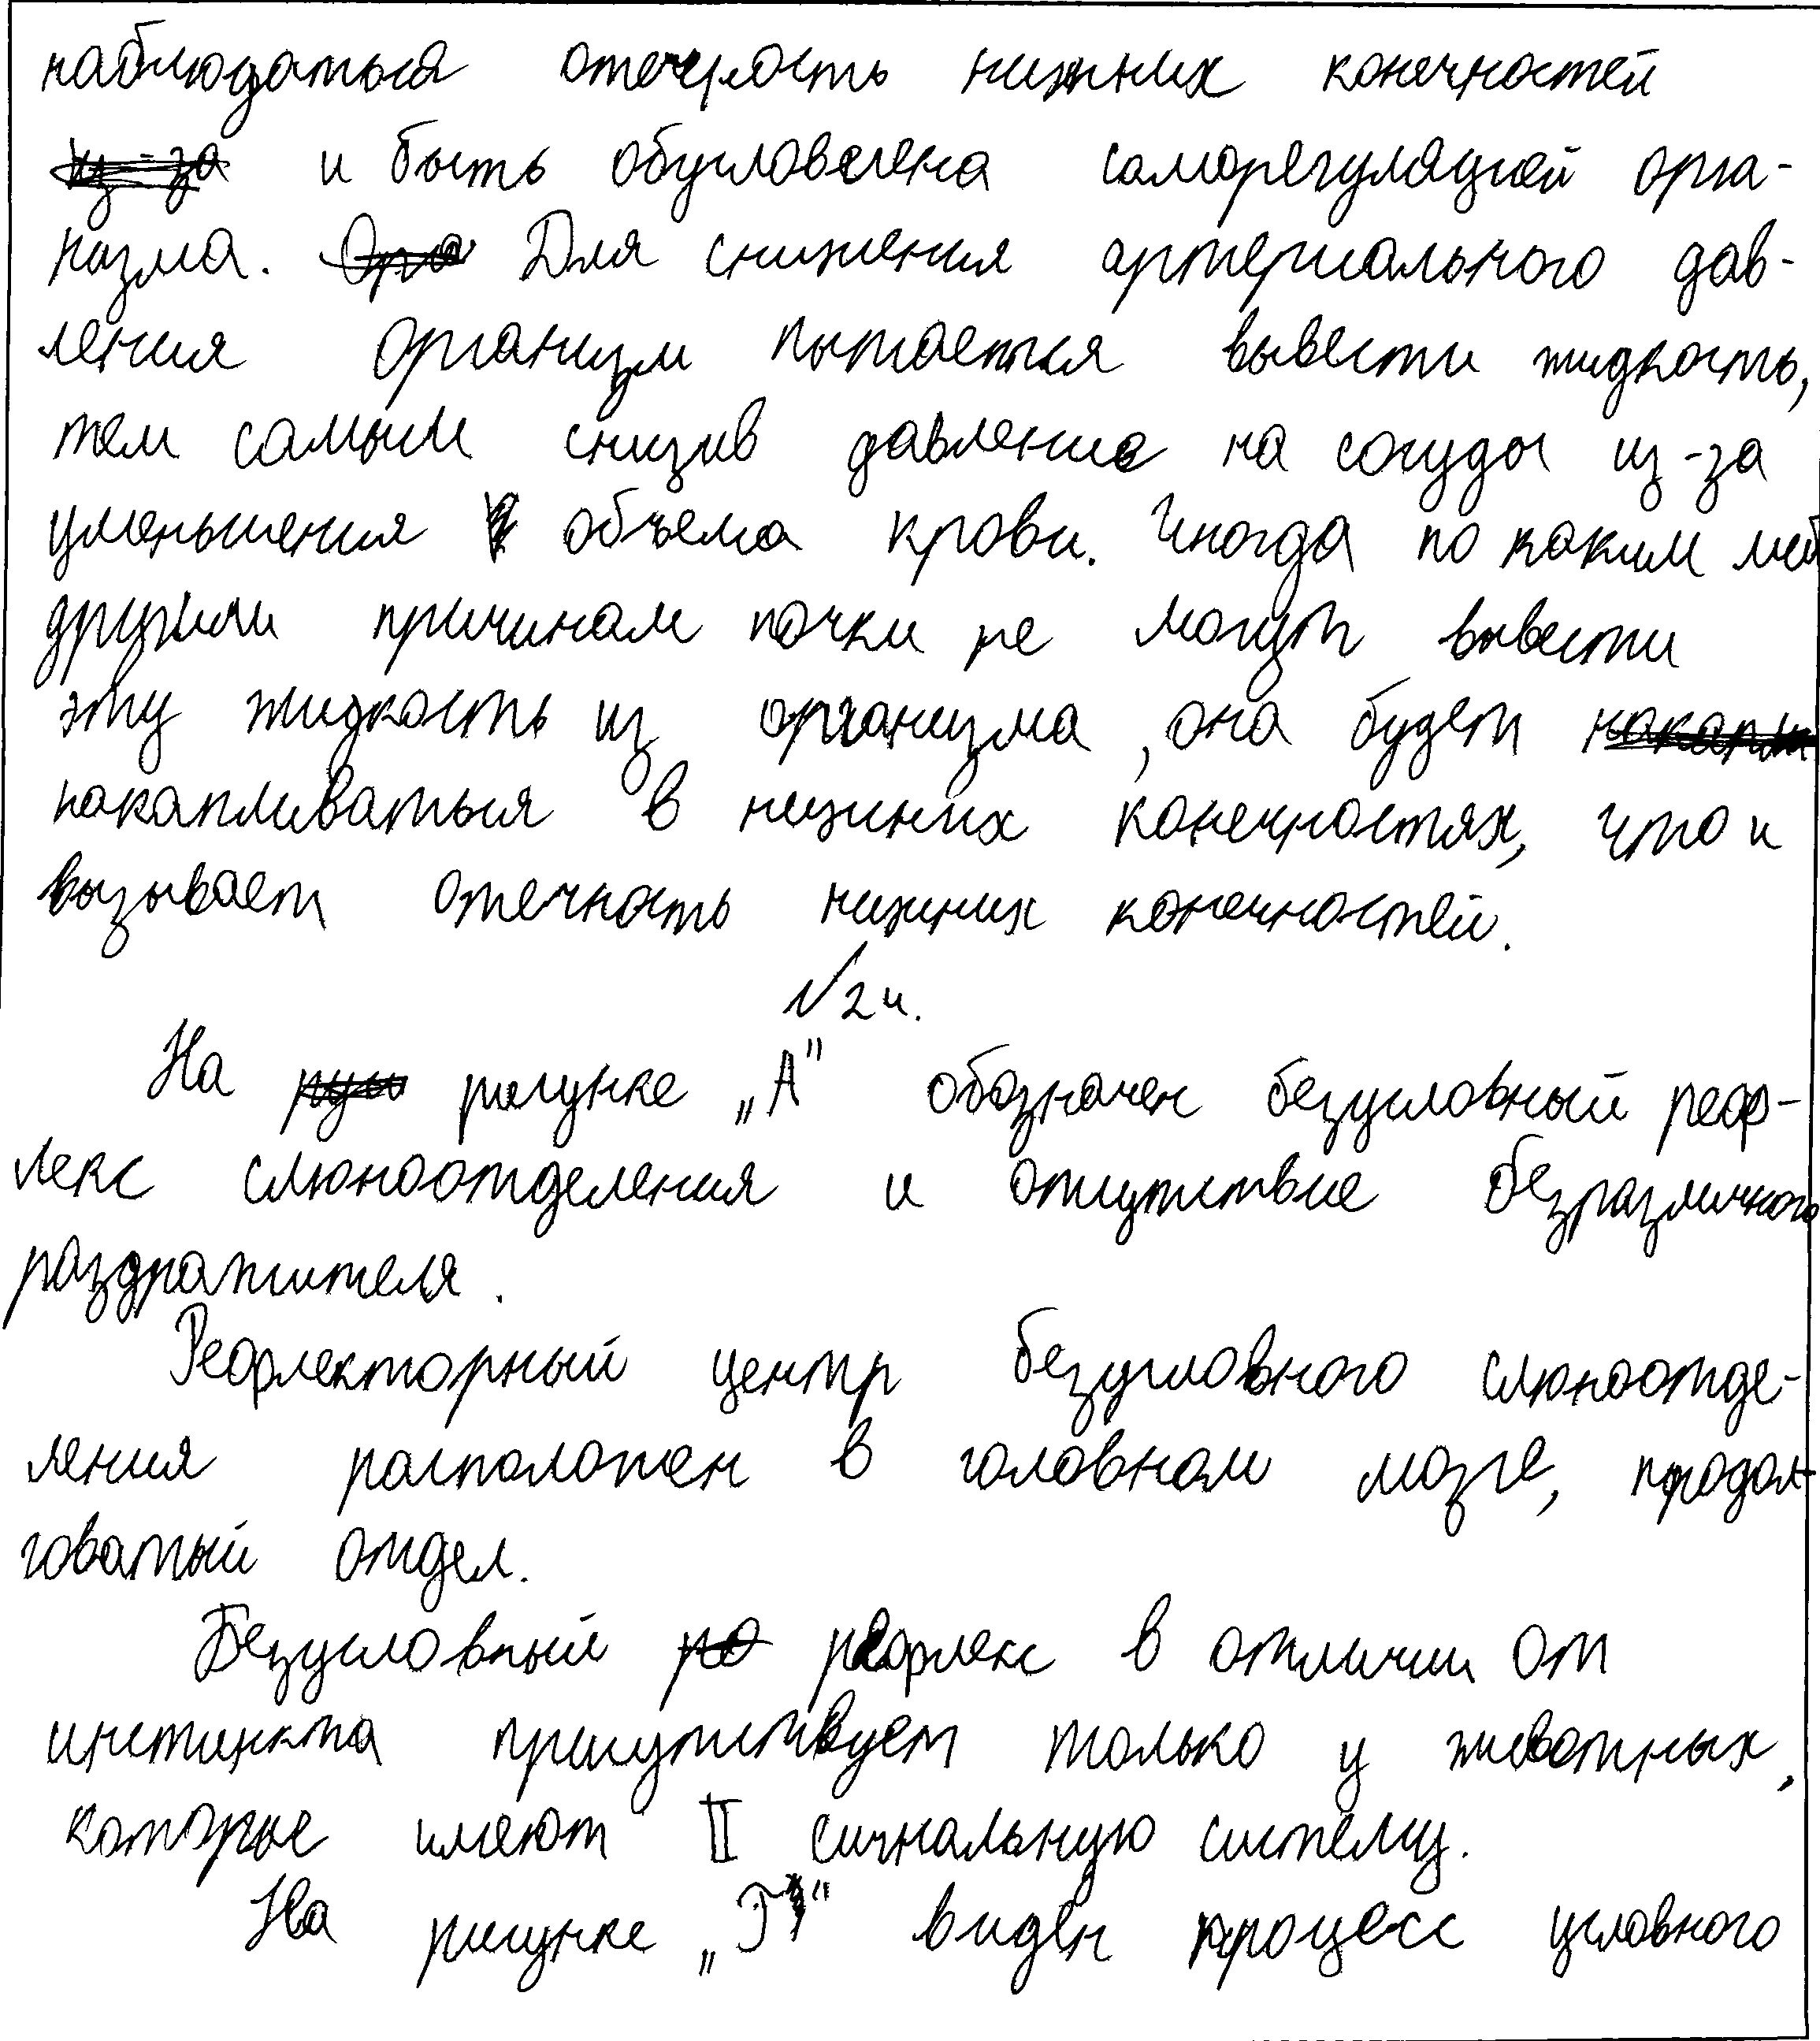 наблюдаться отечность нижних конечностей
и быть обусловлена саморегуляцией орга-
низма. Для снижения артериального дав-
ления организм пытается вывести жидкость,
тем самым снизив давление на сосуды из-за
уменьшения объема крови. Иногда по каким либ
другим причинам почки не могут вывести
эту жидкость из организма, она будет
накапливаться в нижних конечностях, что и
вызывает отечность нижних конечностей.
№24.
На рисунке „А" обозначен безусловный реф-
лекс слюноотделения и отсутствие безразличного
раздражителя.
Рефлекторный центр безусловного слюноотде-
ления расположен в головном мозге, продол-
говатый отдел.
Безусловный рефлекс в отличии от
инстинкта присутствует только у животных,
которые имеют II сигнальную систему.
На рисунке „Г" виден процесс условного